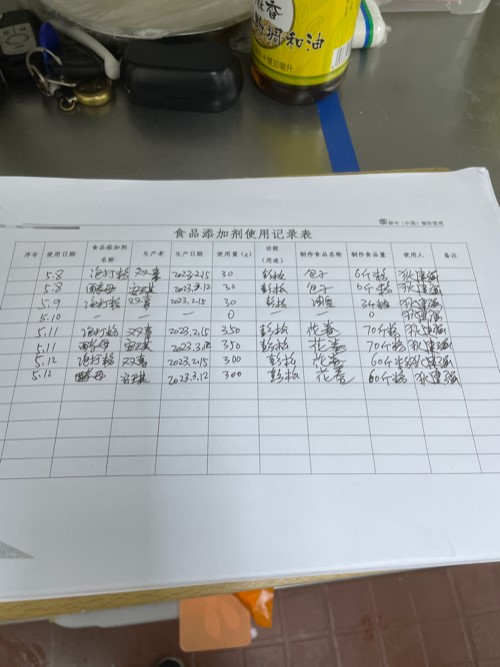 芝麻香
调和油
新中(中国)餐饮管理
食品添加剂使用记录表
序号 使用日期 食品添加剂名称 生产者 生产日期 使用量(g) 功能(用途) 制作食品名称 制作食品量 使用人 备注
5.8 泡打粉 双喜 2023.2.15 30 膨松 包子 6斤粉
5.8 酵母 安琪 2023.3.12 30 膨松 包子 6斤粉
5.9 泡打粉 双喜 2023.2.15 30 膨松 3斤粉
5.10 — — — 0 — — 0
5.11 泡打粉 双喜 2023.2.15 350 膨松 花卷 70斤粉
5.11 酵母 安琪 2023.3.12 350 膨松 花卷 70斤粉
5.12 泡打粉 双喜 2023.2.15 300 膨松 花卷 60斤粉
5.12 酵母 安琪 2023.3.12 300 膨松 花卷 60斤粉